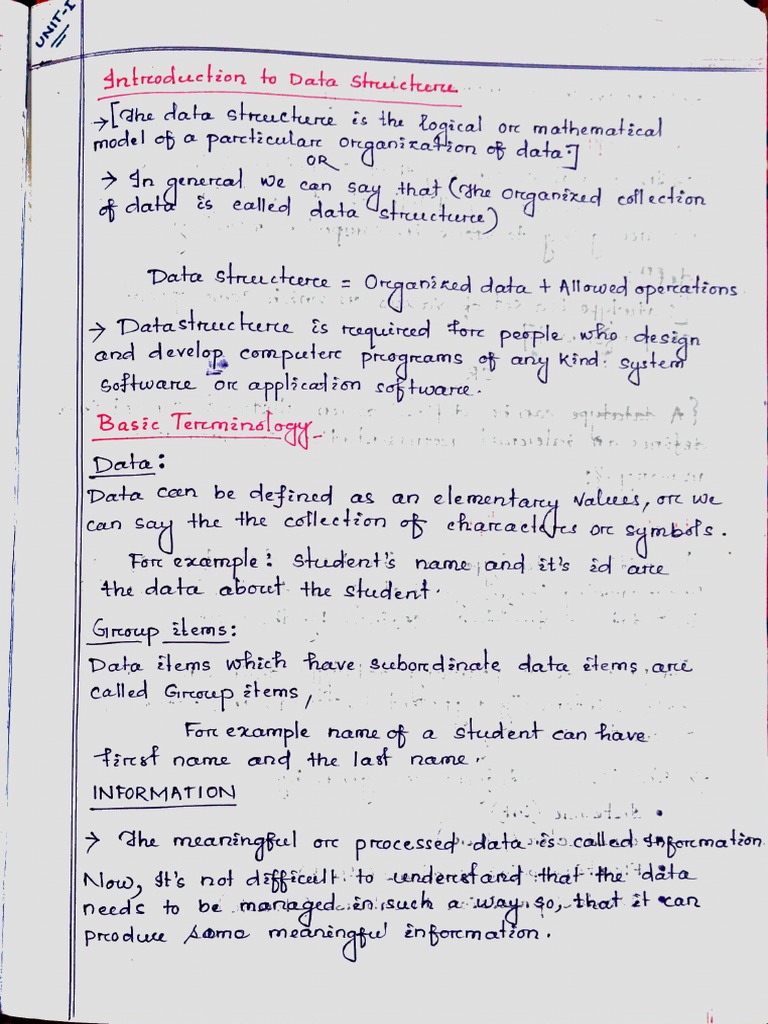 UNIT-I
Introduction to Data Structure
→ [The data structure is the logical or mathematical
model of a particular organization of data.]
OR
→ In general we can say that (The organized collection
of data is called data structure)
Data structure = Organized data + Allowed operations
→ Datastructure is required for people who design
and develop computer programs of any kind: system
software or application software.
Basic Terminology
Data:
Data can be defined as an elementary values, or we
can say the the collection of characters or symbols.
For example: student's name and it's id are
the data about the student.
Group items:
Data items which have subordinate data items are
called Group items,
For example name of a student can have
first name and the last name.
INFORMATION
→ The meaningful or processed data is called Information
Now, It's not difficult to understand that the data
needs to be managed in such a way so, that it can
produce some meaningful information.